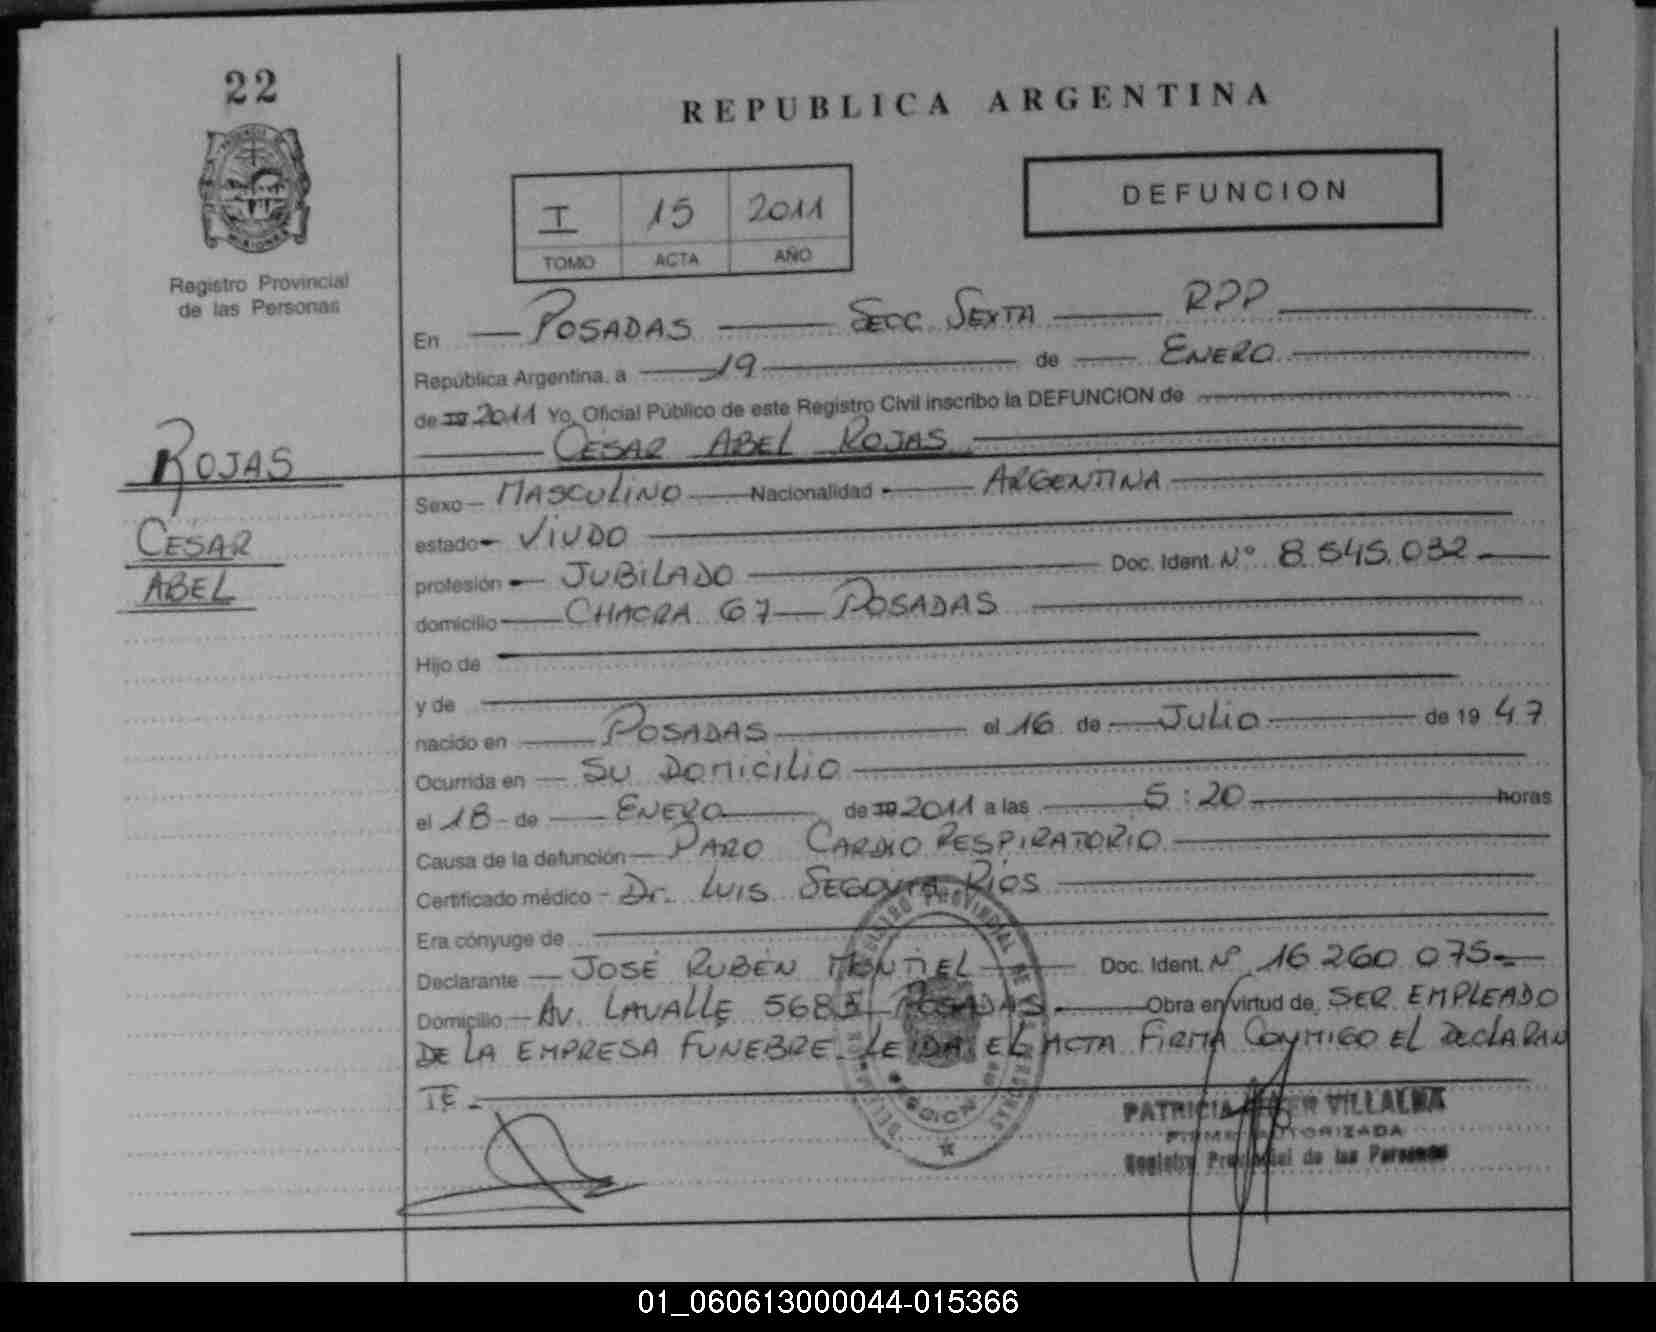 22
REPUBLICA ARGENTINA
DEFUNCION
I 15 2011
TOMO ACTA AÑO
Registro Provincial
de las Personas
ROJAS
CESAR
ABEL
En POSADAS SECC. SEXTA RPP
República Argentina, a 19 de ENERO
de 2011 Yo, Oficial Público de este Registro Civil inscribo la DEFUNCION de
CESAR ABEL ROJAS
Sexo MASCULINO Nacionalidad ARGENTINA
estado VIUDO
profesión JUBILADO Doc. Ident. Nº 8.545.032
domicilio CHACRA 67 POSADAS
Hijo de
y de
nacido en POSADAS el 16 de JULIO de 19 47
Ocurrida en SU DOMICILIO
el 18 de ENERO de 2011 a las 5:20 horas
Causa de la defunción PARO CARDIO RESPIRATORIO
Certificado médico Dr. LUIS SEGOVIA RIOS
Era cónyuge de
Declarante JOSÉ RUBEN MONTIEL Doc. Ident. Nº 16 260 075
Domicilio AV. LAVALLE POSADAS Obra en virtud de SER EMPLEADO
DE LA EMPRESA FUNEBRE. LEIDA EL ACTA FIRMA CONMIGO EL DECLARAN
TE.
PATRICIA VILLALBA
FIRMA AUTORIZADA
Registro Provincial de las Personas
01_060613000044-015366